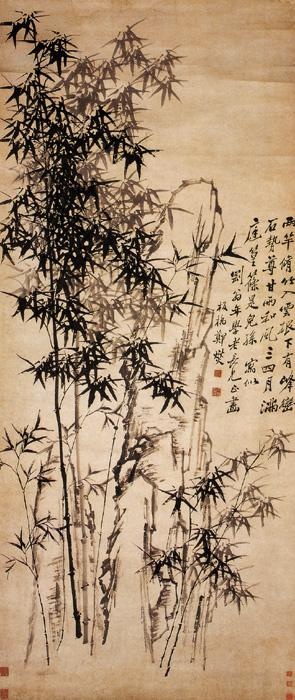 兩竿脩竹雲根下有峰巒
石勢尊甘雨和風三四月滿
庭篁篠是兒孫 寫似
劉 年學老長兄正畫
板橋鄭燮